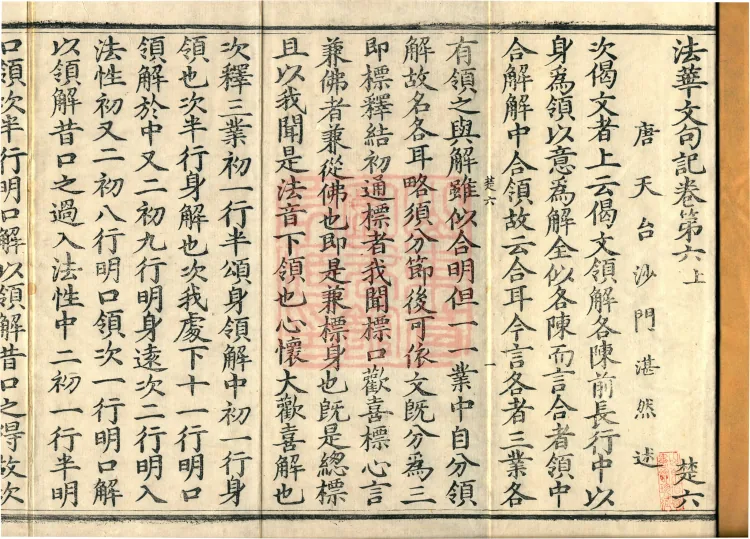 法華文句記卷第六上　楚六
唐天台沙門湛然述
次偈文者上云偈文領解各陳前長行中以
身為領以意為解全似各陳而言合者領中
合解解中合領故云合耳今言各者三業各
楚六　一
有領之與解雖似合明但一一業中自分領
解故名各耳略須分節後可依文既分為三
即標釋結初通標者我聞標口歡喜標心言
兼佛者兼從佛也即是兼標身也既是總標
且以我聞是法音下領也心懷大歡喜解也
次釋三業初一行半頌身領解中初一行身
領也次半行身解也次我處下十一行明口
領解於中又二初九行明身遠次二行明入
法性初又二初八行明口領次一行明口解
以領解昔口之過入法性中二初一行半明
口領次半行明口解以領解昔口之得故次